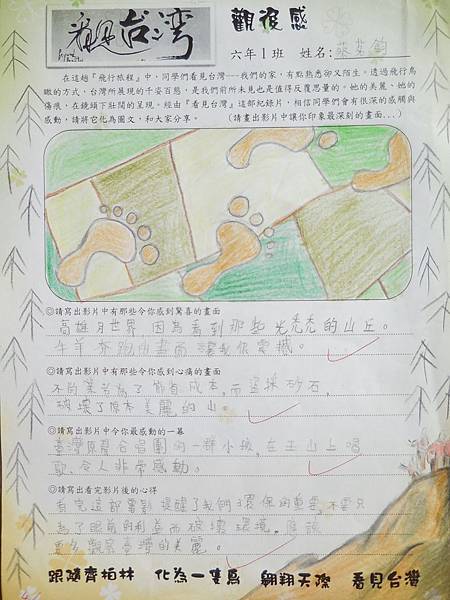 看見台灣
觀後感
六年1班 姓名:
在這趟『飛行旅程』中,同學們看見台灣---我們的家,有點熟悉卻又陌生。透過飛行鳥
瞰的方式,台灣所展現的千姿百態,是我們前所未見也是值得反覆思量的。她的美麗、她的
傷痕,在鏡頭下壯闊的呈現。經由『看見台灣』這部紀錄片,相信同學們會有很深的感觸與
感動,請將它化為圖文,和大家分享。 (請畫出影片中讓你印象最深刻的畫面...)
◎請寫出影片中有那些令你感到驚喜的畫面
高雄月世界,因為看到那些光禿禿的山丘。
牛羊奔跑的畫面讓我很震撼。
◎請寫出影片中有那些令你感到心痛的畫面
不肖業者為了節省成本,而盜採砂石,
破壞了原本美麗的山。
◎請寫出影片中令你最感動的一幕
臺灣原聲合唱團的一群小孩,在玉山上唱
歌,令人非常感動。
◎請寫出看完影片後的心得
看完這部電影提醒了我們環保的重要,不要只
為了眼前的利益而破壞環境。應該
更多觀察臺灣的美麗。
跟隨齊柏林 化為一隻鳥 翱翔天際 看見台灣